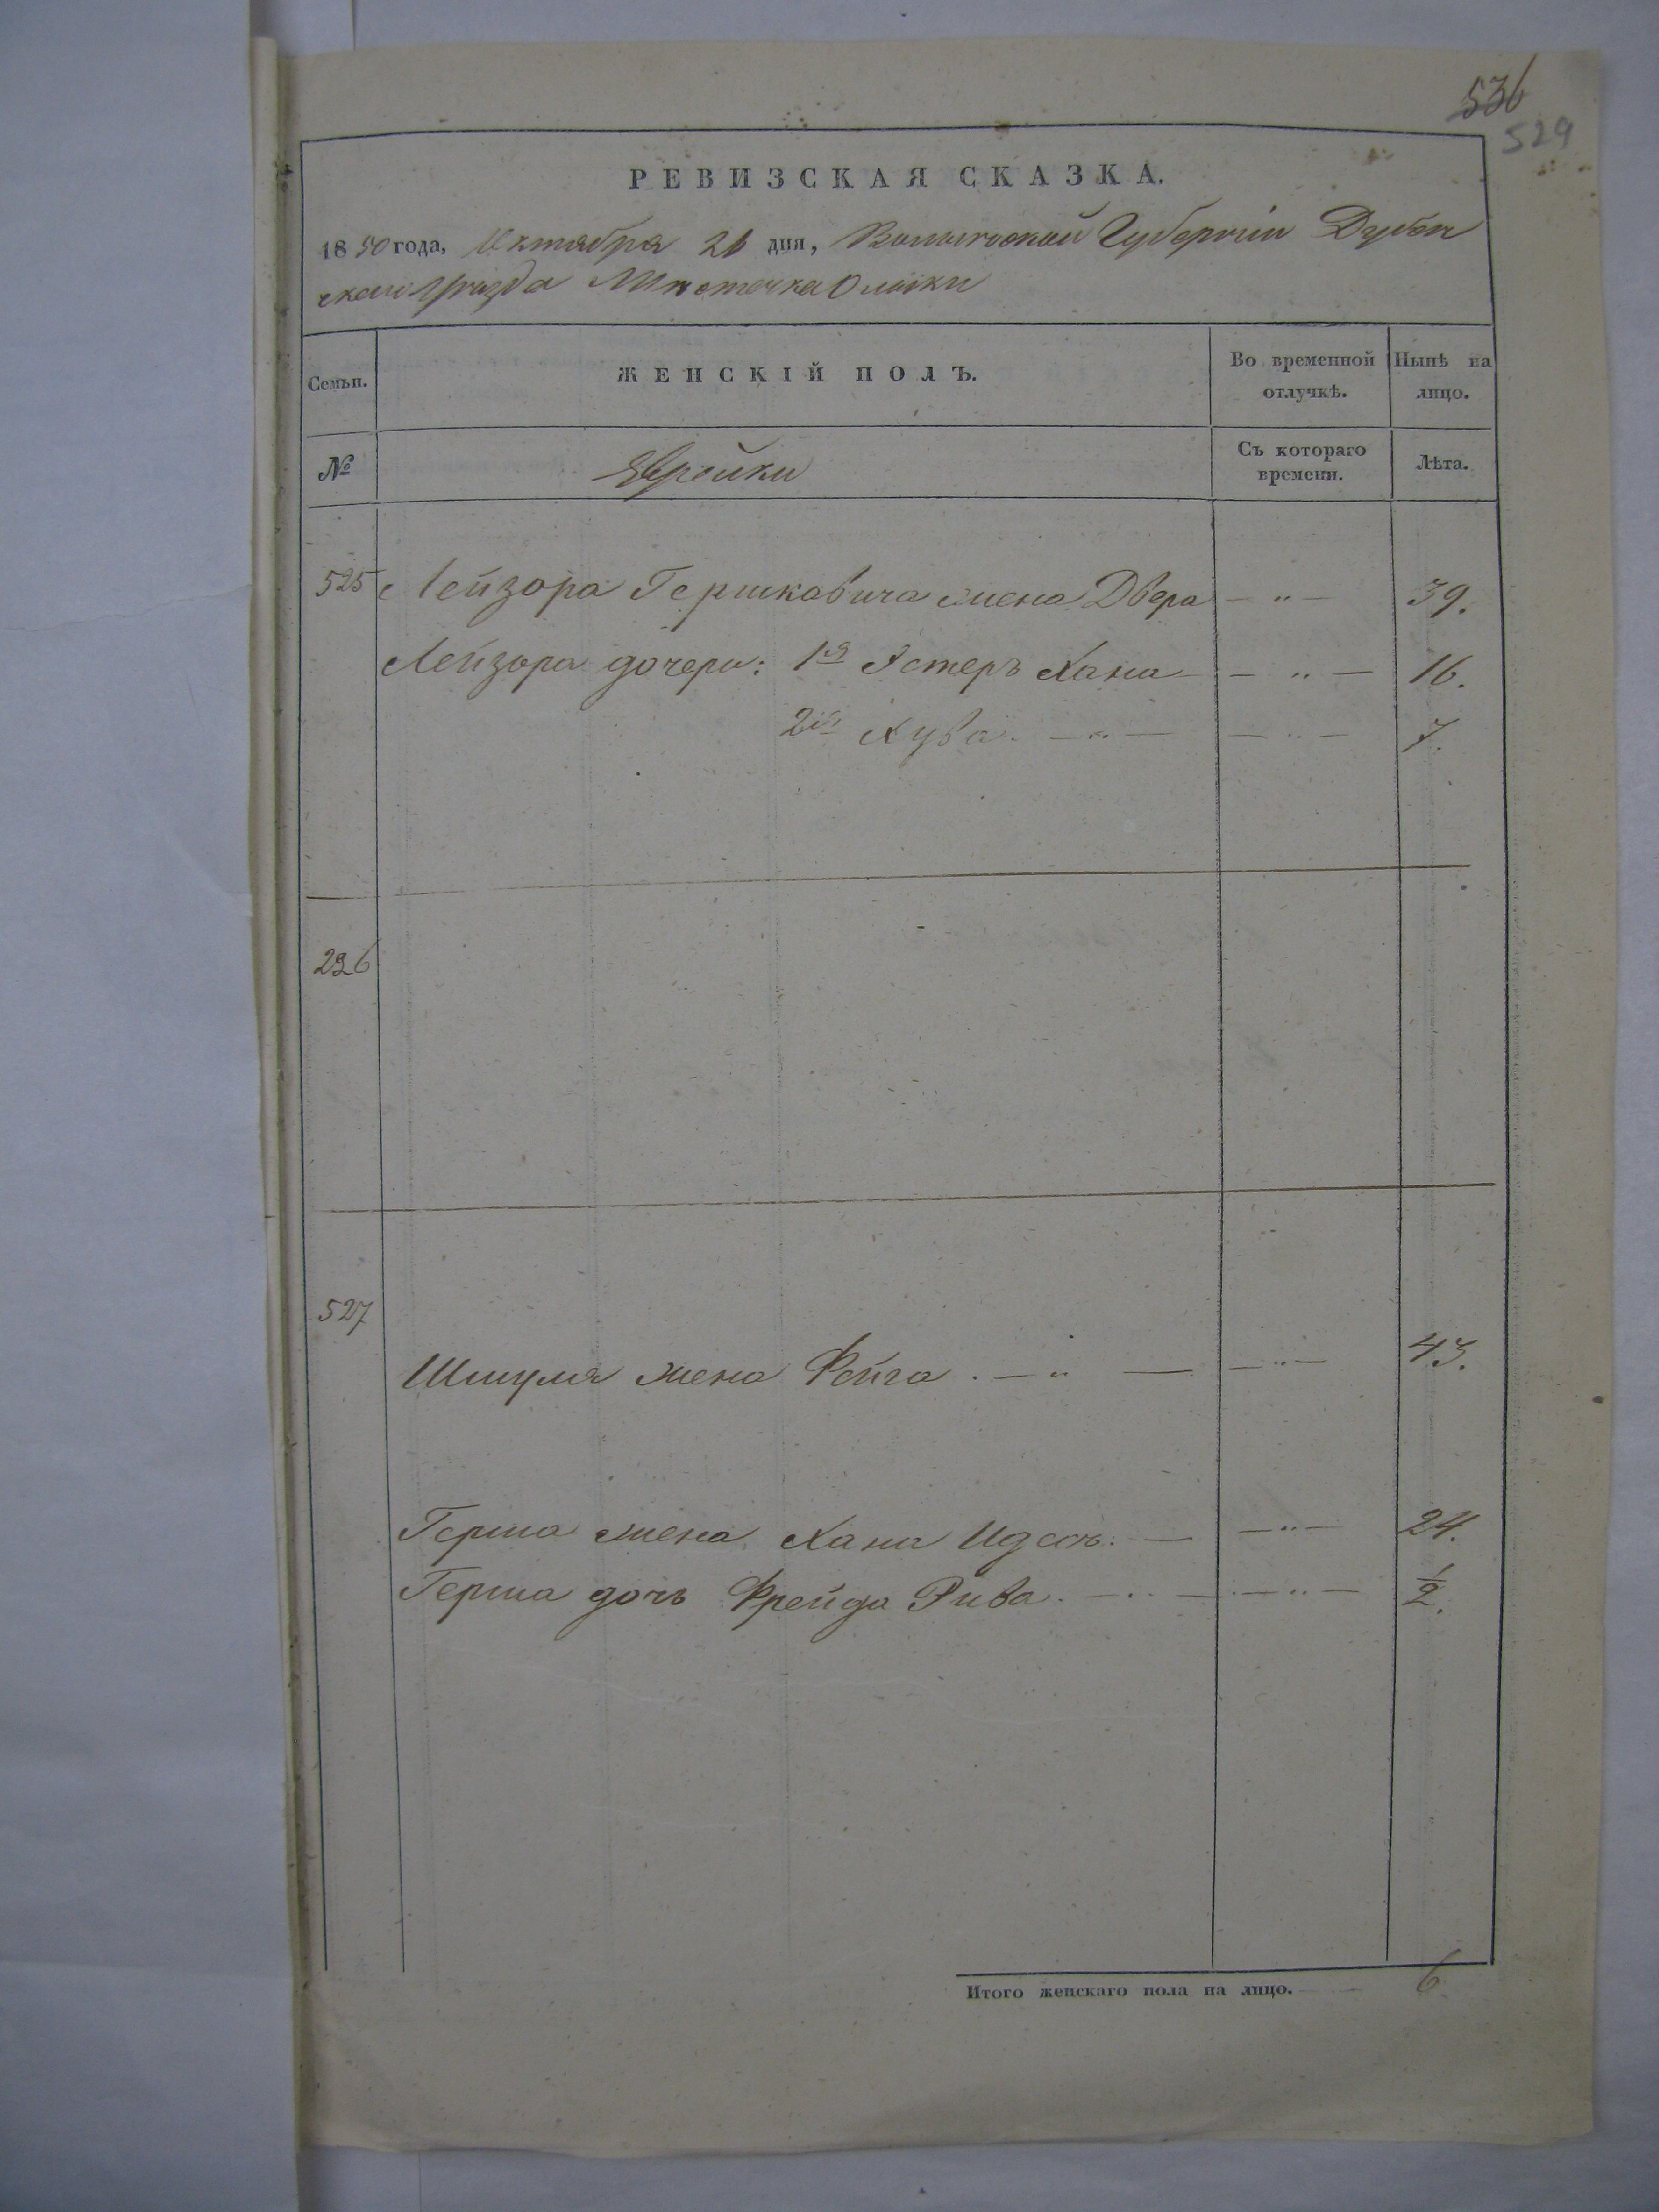 536
529
РЕВИЗСКАЯ СКАЗКА.
1850 года, Октября 21 дня, Волынской Губернии Дубен
скаго Уѣзда Мѣстечка Олыки
Семьи. ЖЕНСКІЙ ПОЛЪ. Во временной отлучкѣ. Нынѣ на лицо.
№ Еврейки Съ котораго времени. Лѣта.
525 Лейзора Гершковича жена Двера — " — 39.
Лейзора дочери: 1я Эстеръ Хана — " — 16.
2я Хува. — " — — " — 7.
226
527
Шмуля жена Фейга . — " — — " — 43.
Герша жена Хана Идесъ. — — " — 24.
Герша дочь Фрейда Рива. — " — — " — 1/2.
Итого женскаго пола на лицо. 6